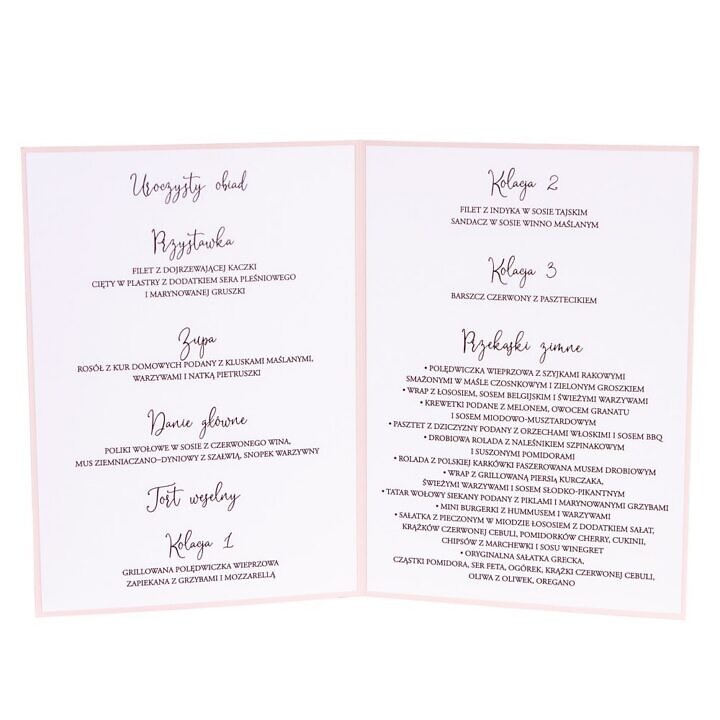 Uroczysty obiad
Przystawka
FILET Z DOJRZEWAJĄCEJ KACZKI
CIĘTY W PLASTRY Z DODATKIEM SERA PLEŚNIOWEGO
I MARYNOWANEJ GRUSZKI
Zupa
ROSÓŁ Z KUR DOMOWYCH PODANY Z KLUSKAMI MAŚLANYMI,
WARZYWAMI I NATKĄ PIETRUSZKI
Danie główne
POLIKI WOŁOWE W SOSIE Z CZERWONEGO WINA,
MUS ZIEMNIACZANO–DYNIOWY Z SZAŁWIĄ, SNOPEK WARZYWNY
Tort weselny
Kolacja 1
GRILLOWANA POLĘDWICZKA WIEPRZOWA
ZAPIEKANA Z GRZYBAMI I MOZZARELLĄ
Kolacja 2
FILET Z INDYKA W SOSIE TAJSKIM
SANDACZ W SOSIE WINNO MAŚLANYM
Kolacja 3
BARSZCZ CZERWONY Z PASZTECIKIEM
Przekąski zimne
• POLĘDWICZKA WIEPRZOWA Z SZYJKAMI RAKOWYMI
SMAŻONYMI W MAŚLE CZOSNKOWYM I ZIELONYM GROSZKIEM
• WRAP Z ŁOSOSIEM, SOSEM BELGIJSKIM I ŚWIEŻYMI WARZYWAMI
• KREWETKI PODANE Z MELONEM, OWOCEM GRANATU
I SOSEM MIODOWO-MUSZTARDOWYM
• PASZTET Z DZICZYZNY PODANY Z ORZECHAMI WŁOSKIMI I SOSEM BBQ
• DROBIOWA ROLADA Z NALEŚNIKIEM SZPINAKOWYM
I SUSZONYMI POMIDORAMI
• ROLADA Z POLSKIEJ KARKÓWKI FASZEROWANA MUSEM DROBIOWYM
• WRAP Z GRILLOWANĄ PIERSIĄ KURCZAKA,
ŚWIEŻYMI WARZYWAMI I SOSEM SŁODKO-PIKANTNYM
• TATAR WOŁOWY SIEKANY PODANY Z PIKLAMI I MARYNOWANYMI GRZYBAMI
• MINI BURGERKI Z HUMMUSEM I WARZYWAMI
• SAŁATKA Z PIECZONYM W MIODZIE ŁOSOSIEM Z DODATKIEM SAŁAT,
KRĄŻKÓW CZERWONEJ CEBULI, POMIDORKÓW CHERRY, CUKINII,
CHIPSÓW Z MARCHEWKI I SOSU WINEGRET
• ORYGINALNA SAŁATKA GRECKA,
CZĄSTKI POMIDORA, SER FETA, OGÓREK, KRĄŻKI CZERWONEJ CEBULI,
OLIWA Z OLIWEK, OREGANO